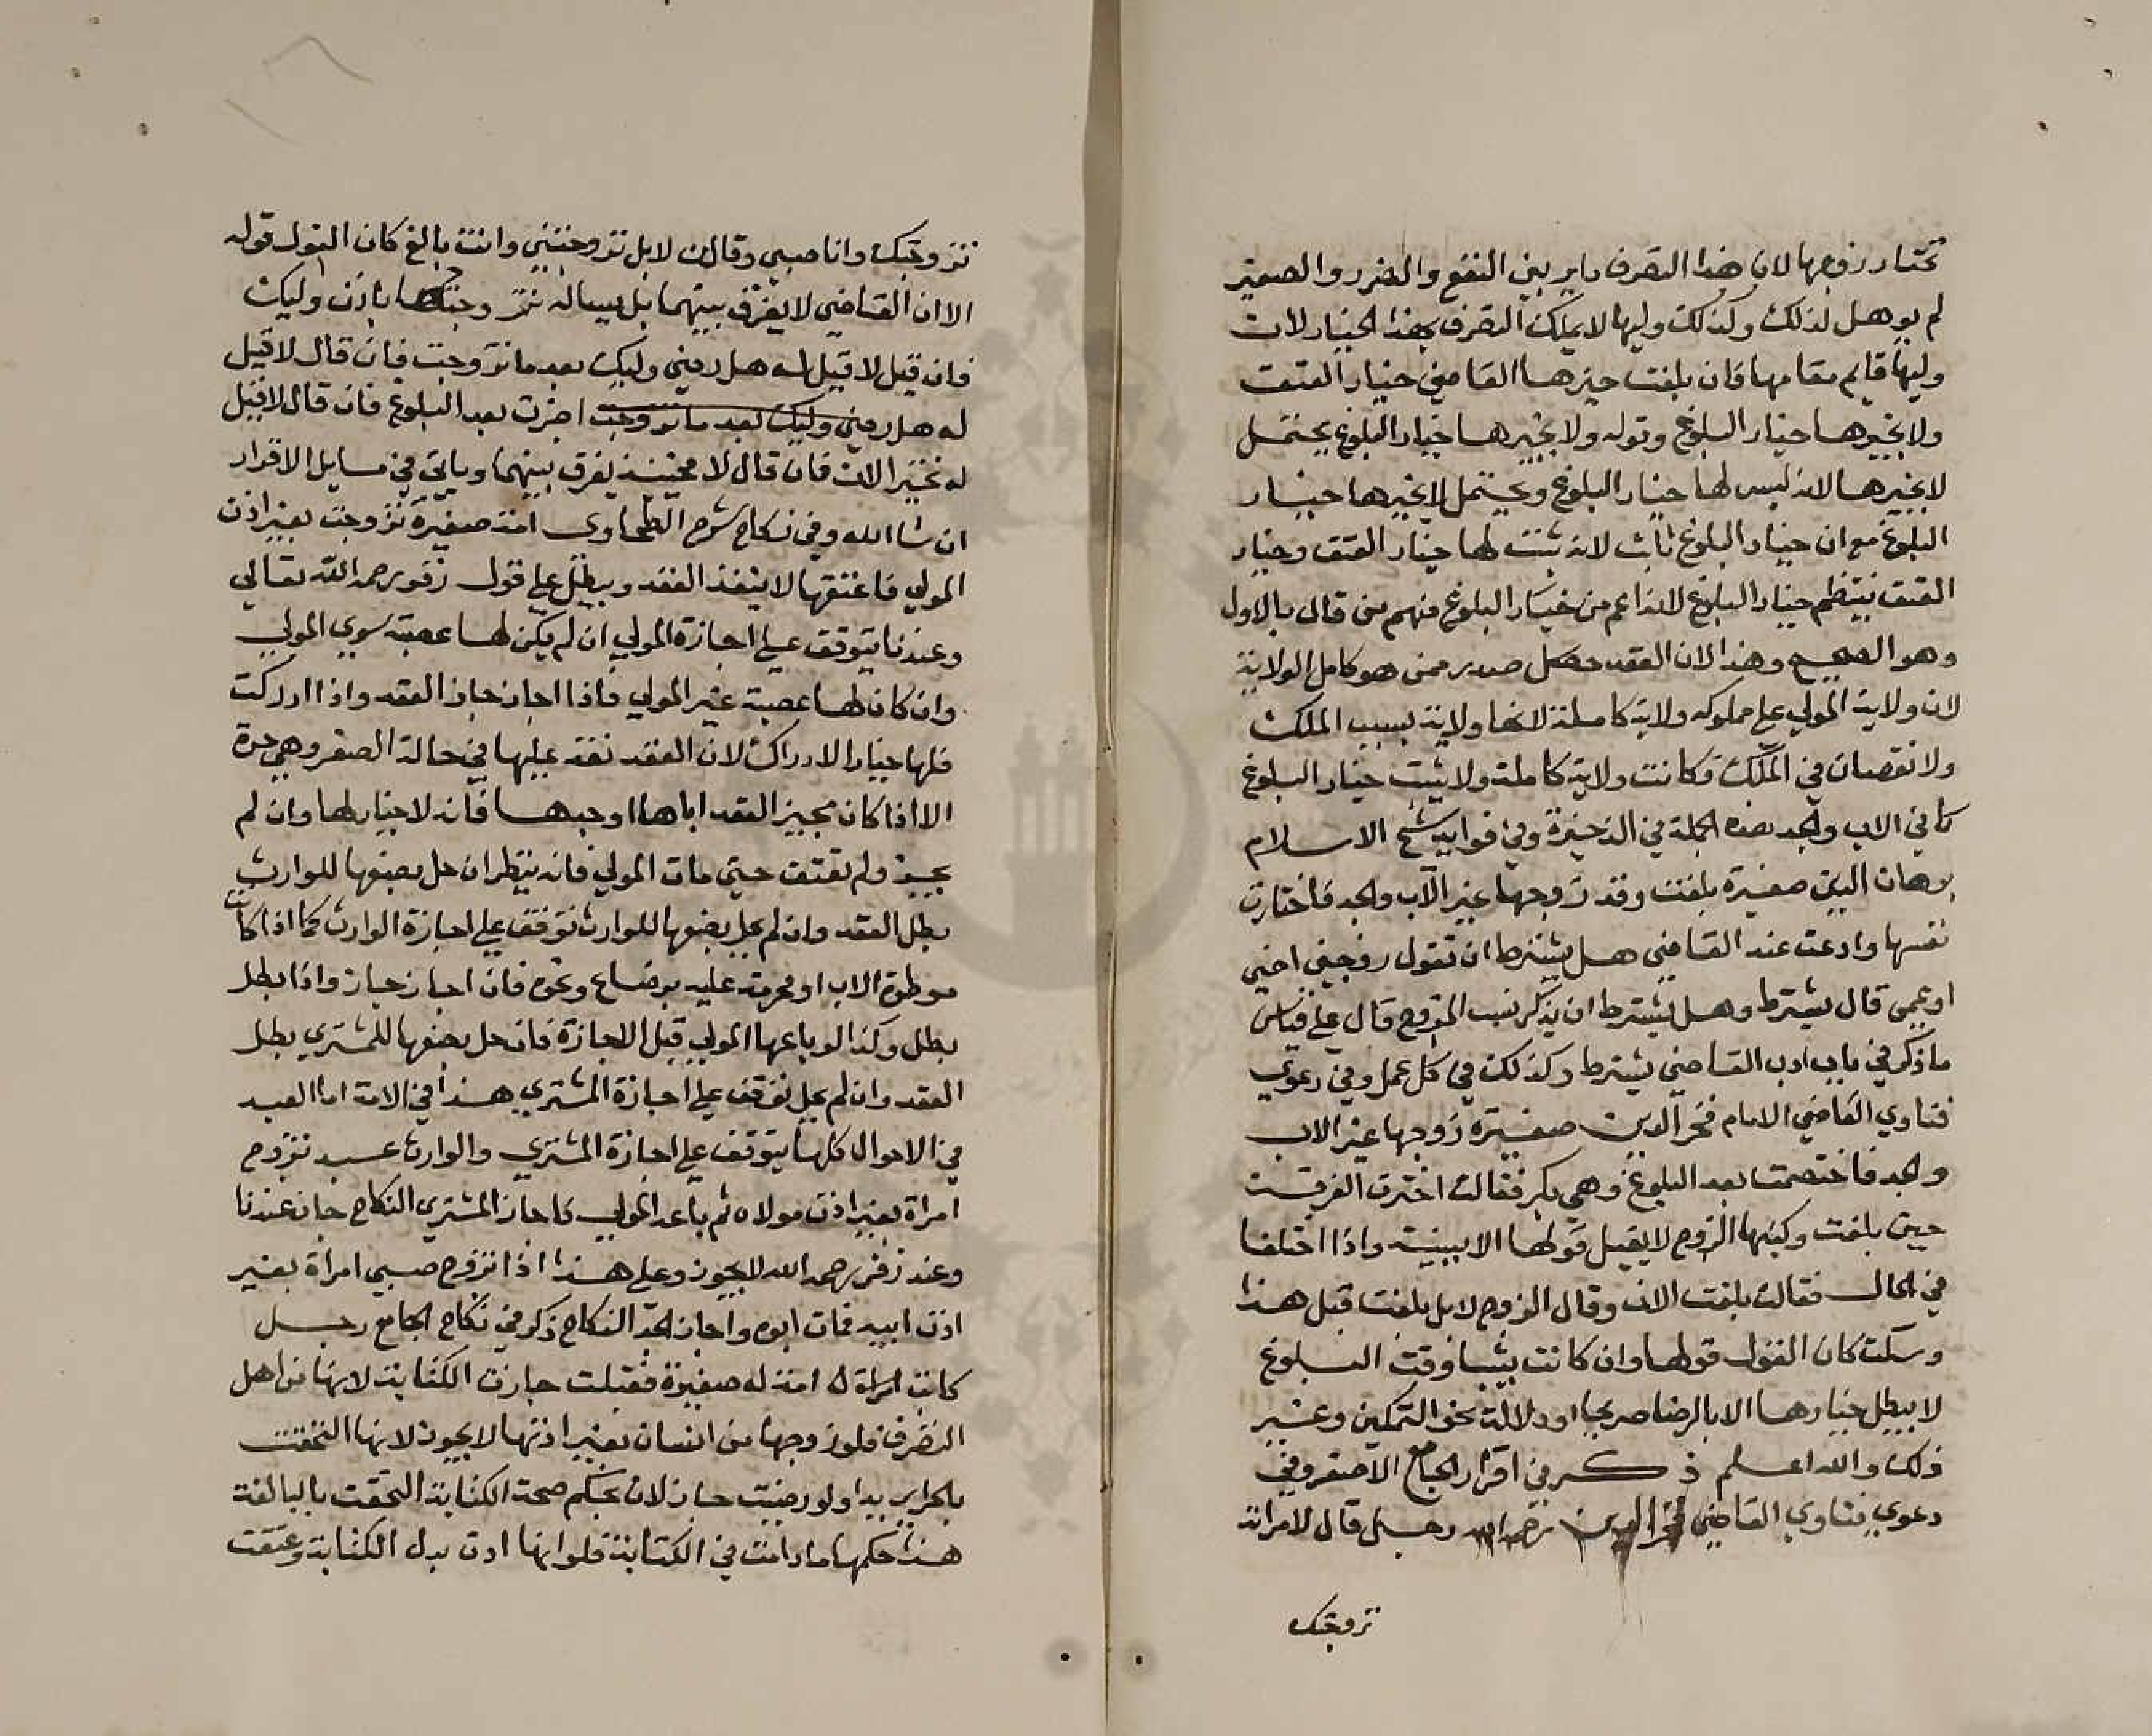 تختار زوجها لان هذا التصرف داير بين النفع والضرر والصغير
لم يوهل لذلك وكذلك وليها لا يملك التصرف بهذا الخيار لان
وليها قايم مقامها فان بلغت خيرها القاضي خيار العتق
ولا يخيرها خيار البلوغ وقوله ولا يخيرها خيار البلوغ يحتمل
لا يخيرها لانه ليس لها خيار البلوغ ويحتمل لا يخيرها خيار
البلوغ مع ان خيار البلوغ ثابت لانه يثبت لها خيار العتق وخيار
العتق ينتظم خيار البلوغ لانه اعم من خيار البلوغ منهم من قال بالاول
وهو الصحيح وهذا لان العقد حصل صدر ممن هو كامل الولاية
لان ولاية المولي علي مملوكه ولاية كاملة لانها ولاية بسبب الملك
ولا نقصان في الملك فكانت ولاية كاملة ولا يثبت خيار البلوغ
كما في الاب والجد هذه الجملة في الذخيرة وفي فوايد شيخ الاسلام
برهان الدين صغيرة بلغت وقد زوجها غير الاب والجد فاختارت
نفسها وادعت عند القاضي هل يشترط ان تقول زوجني اخي
او عمي قال يشترط وهل يشترط ان يذكر نسب المزوج قال علي قياس
ما ذكر في باب ادب القاضي يشترط وكذلك في كل عمل وفي دعوي
فتاوي القاضي الامام فخر الدين صغيرة زوجها غير الاب
والجد فاختصمت بعد البلوغ وهي بكر فقالت اخترت الفرقة
حين بلغت وكذبها الزوج لا يقبل قولها الا ببينة واذا اختلفا
في الحال فقالت بلغت الان وقال الزوج لا بل بلغت قبل هذا
وسكت كان القول قولها وان كانت ثيبا وقت البلوغ
لا يبطل خيارها الا بالرضا صريحا او دلالة نحو التمكين وغير
ذلك والله اعلم ذكر في اقرار الجامع الاصغر وفي
دعوي فتاوي القاضي فخر الدين رحمه الله رجل قال لامراته
تزوجتك
تزوجتك وانا صبي وقالت لا بل تزوجتني وانت بالغ كان القول قوله
الا ان القاضي لا يفرق بينهما بل يساله تزوجتها باذن وليك
فان قيل لا قيل له هل رضي وليك بعد ما تزوجت فان قال لا قيل
له هل رضي وليك بعد ما تزوجت اجزت بعد البلوغ فان قال لا قيل
له تجيز الان فان قال لا فحينئذ يفرق بينهما وياتي في مسايل الاقرار
ان شا الله وفي نكاح شرح الطحاوي امة صغيرة تزوجت بغير اذن
المولي فاعتقها لا ينفذ العقد ويبطل علي قول زفر رحمه الله تعالي
وعندنا يتوقف علي اجازة المولي ان لم يكن لها عصبة سوي المولي
وان كان لها عصبة غير المولي فاذا اجاز جاز العقد واذا ادركت
فلها خيار الادراك لان العقد نفذ عليها في حالة الصغر وهي حرة
الا اذا كان مجيز العقد اباها او جدها فانه لا خيار لها وان لم
يجيز ولم تعتق حتي مات المولي فانه ينظر ان حل بضعها للوارث
بطل العقد وان لم يحل بضعها للوارث توقف علي اجازة الوارث كما اذا كانت
موطوة الاب او محرمة عليه برضاع ونحوه فان اجاز جاز واذا بطل
بطل وكذا لو باعها المولي قبل الاجازة فان حل بضعها للمشتري بطل
العقد وان لم يحل توقف علي اجازة المشتري هذا في الامة اما العبد
في الاحوال كلها يتوقف علي اجازة المشتري والوارث عبد تزوج
امراة بغير اذن مولاه ثم باعه المولي فاجاز المشتري النكاح جاز عندنا
وعند زفر رحمه الله لا يجوز وعلي هذا اذا تزوج صبي امراة بغير
اذن ابيه فمات ابوه واجاز الجد النكاح ذكر في نكاح الجامع رجل
كاتب امراة له امة له صغيرة فقبلت جازت الكتابة لانها من اهل
التصرف فلو زوجها من انسان بغير اذنها لا يجوز لانها التحقت
بالحراير يدا ولو رضيت جاز لان بحكم صحة الكتابة التحقت بالبالغة
هذا حكمها ما دامت في الكتابة فلو انها ادت بدل الكتابة وعتقت